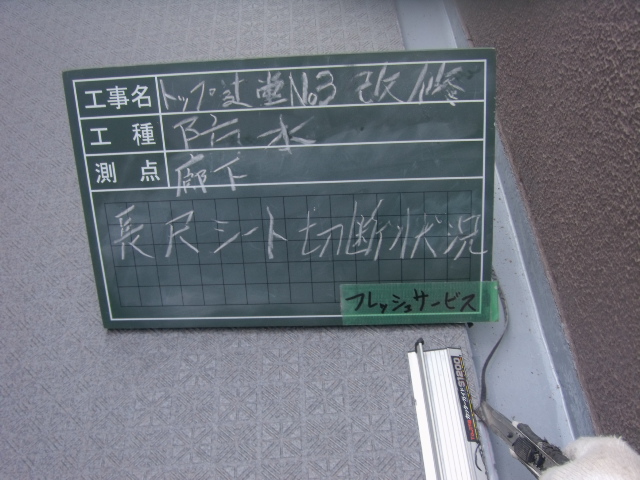 工事名 トップ辻堂No3 改修
工種 防水
測点 廊下
長尺シート切断状況
フレッシュサービス
カットガイド S1200